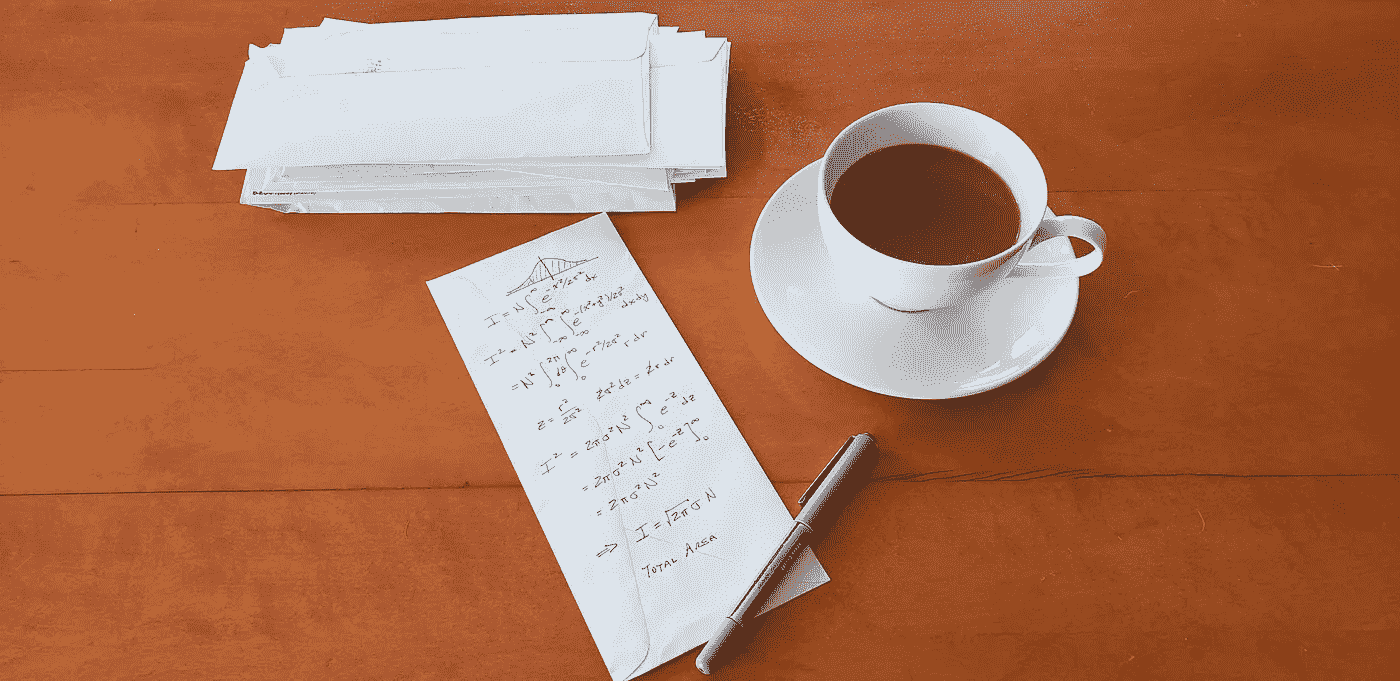 I = N ∫_{-∞}^{∞} e^{-x²/2σ²} dx
I² = N² ∫_{-∞}^{∞} ∫_{-∞}^{∞} e^{-(x²+y²)/2σ²} dx dy
= N² ∫_0^{2π} dθ ∫_0^∞ e^{-r²/2σ²} r dr
z = r²/2σ² 2σ² dz = 2r dr
I² = 2πσ² N² ∫_0^∞ e^{-z} dz
= 2πσ² N² [-e^{-z}]_0^∞
= 2πσ² N²
⇒ I = √2π σ N
TOTAL AREA